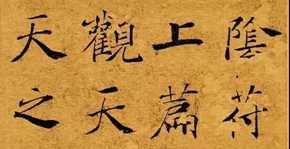 陰符
上篇
觀天
天之